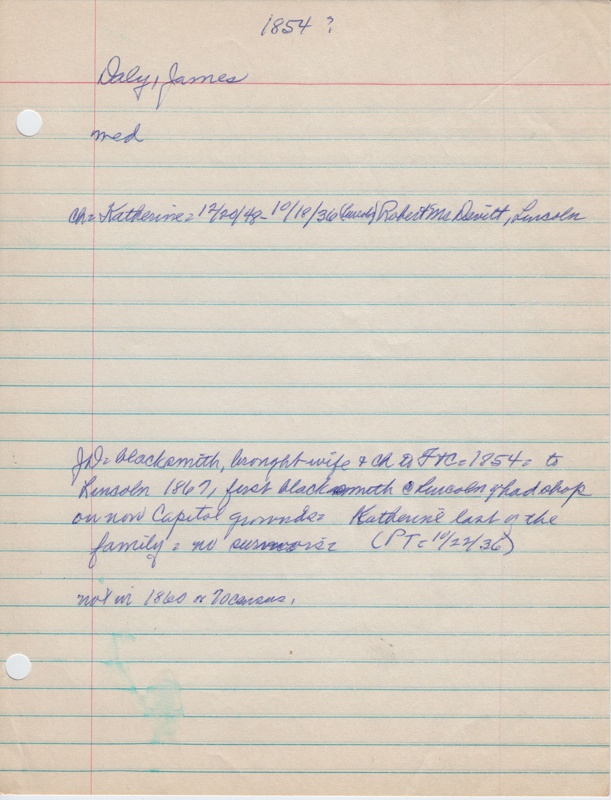 1854 ?
Daly, James
med
ch = Katherine = 12/20/48 - 10/18/36 Robert McDevitt, Lincoln
JD = blacksmith, brought wife & ch to = 1854 = to
Lincoln 1867, first blacksmith @ Lincoln & had shop
on now Capitol grounds = Katherine last of the
family = no survivors = (PT = 10/22/36)
not in 1860 or 70 census.